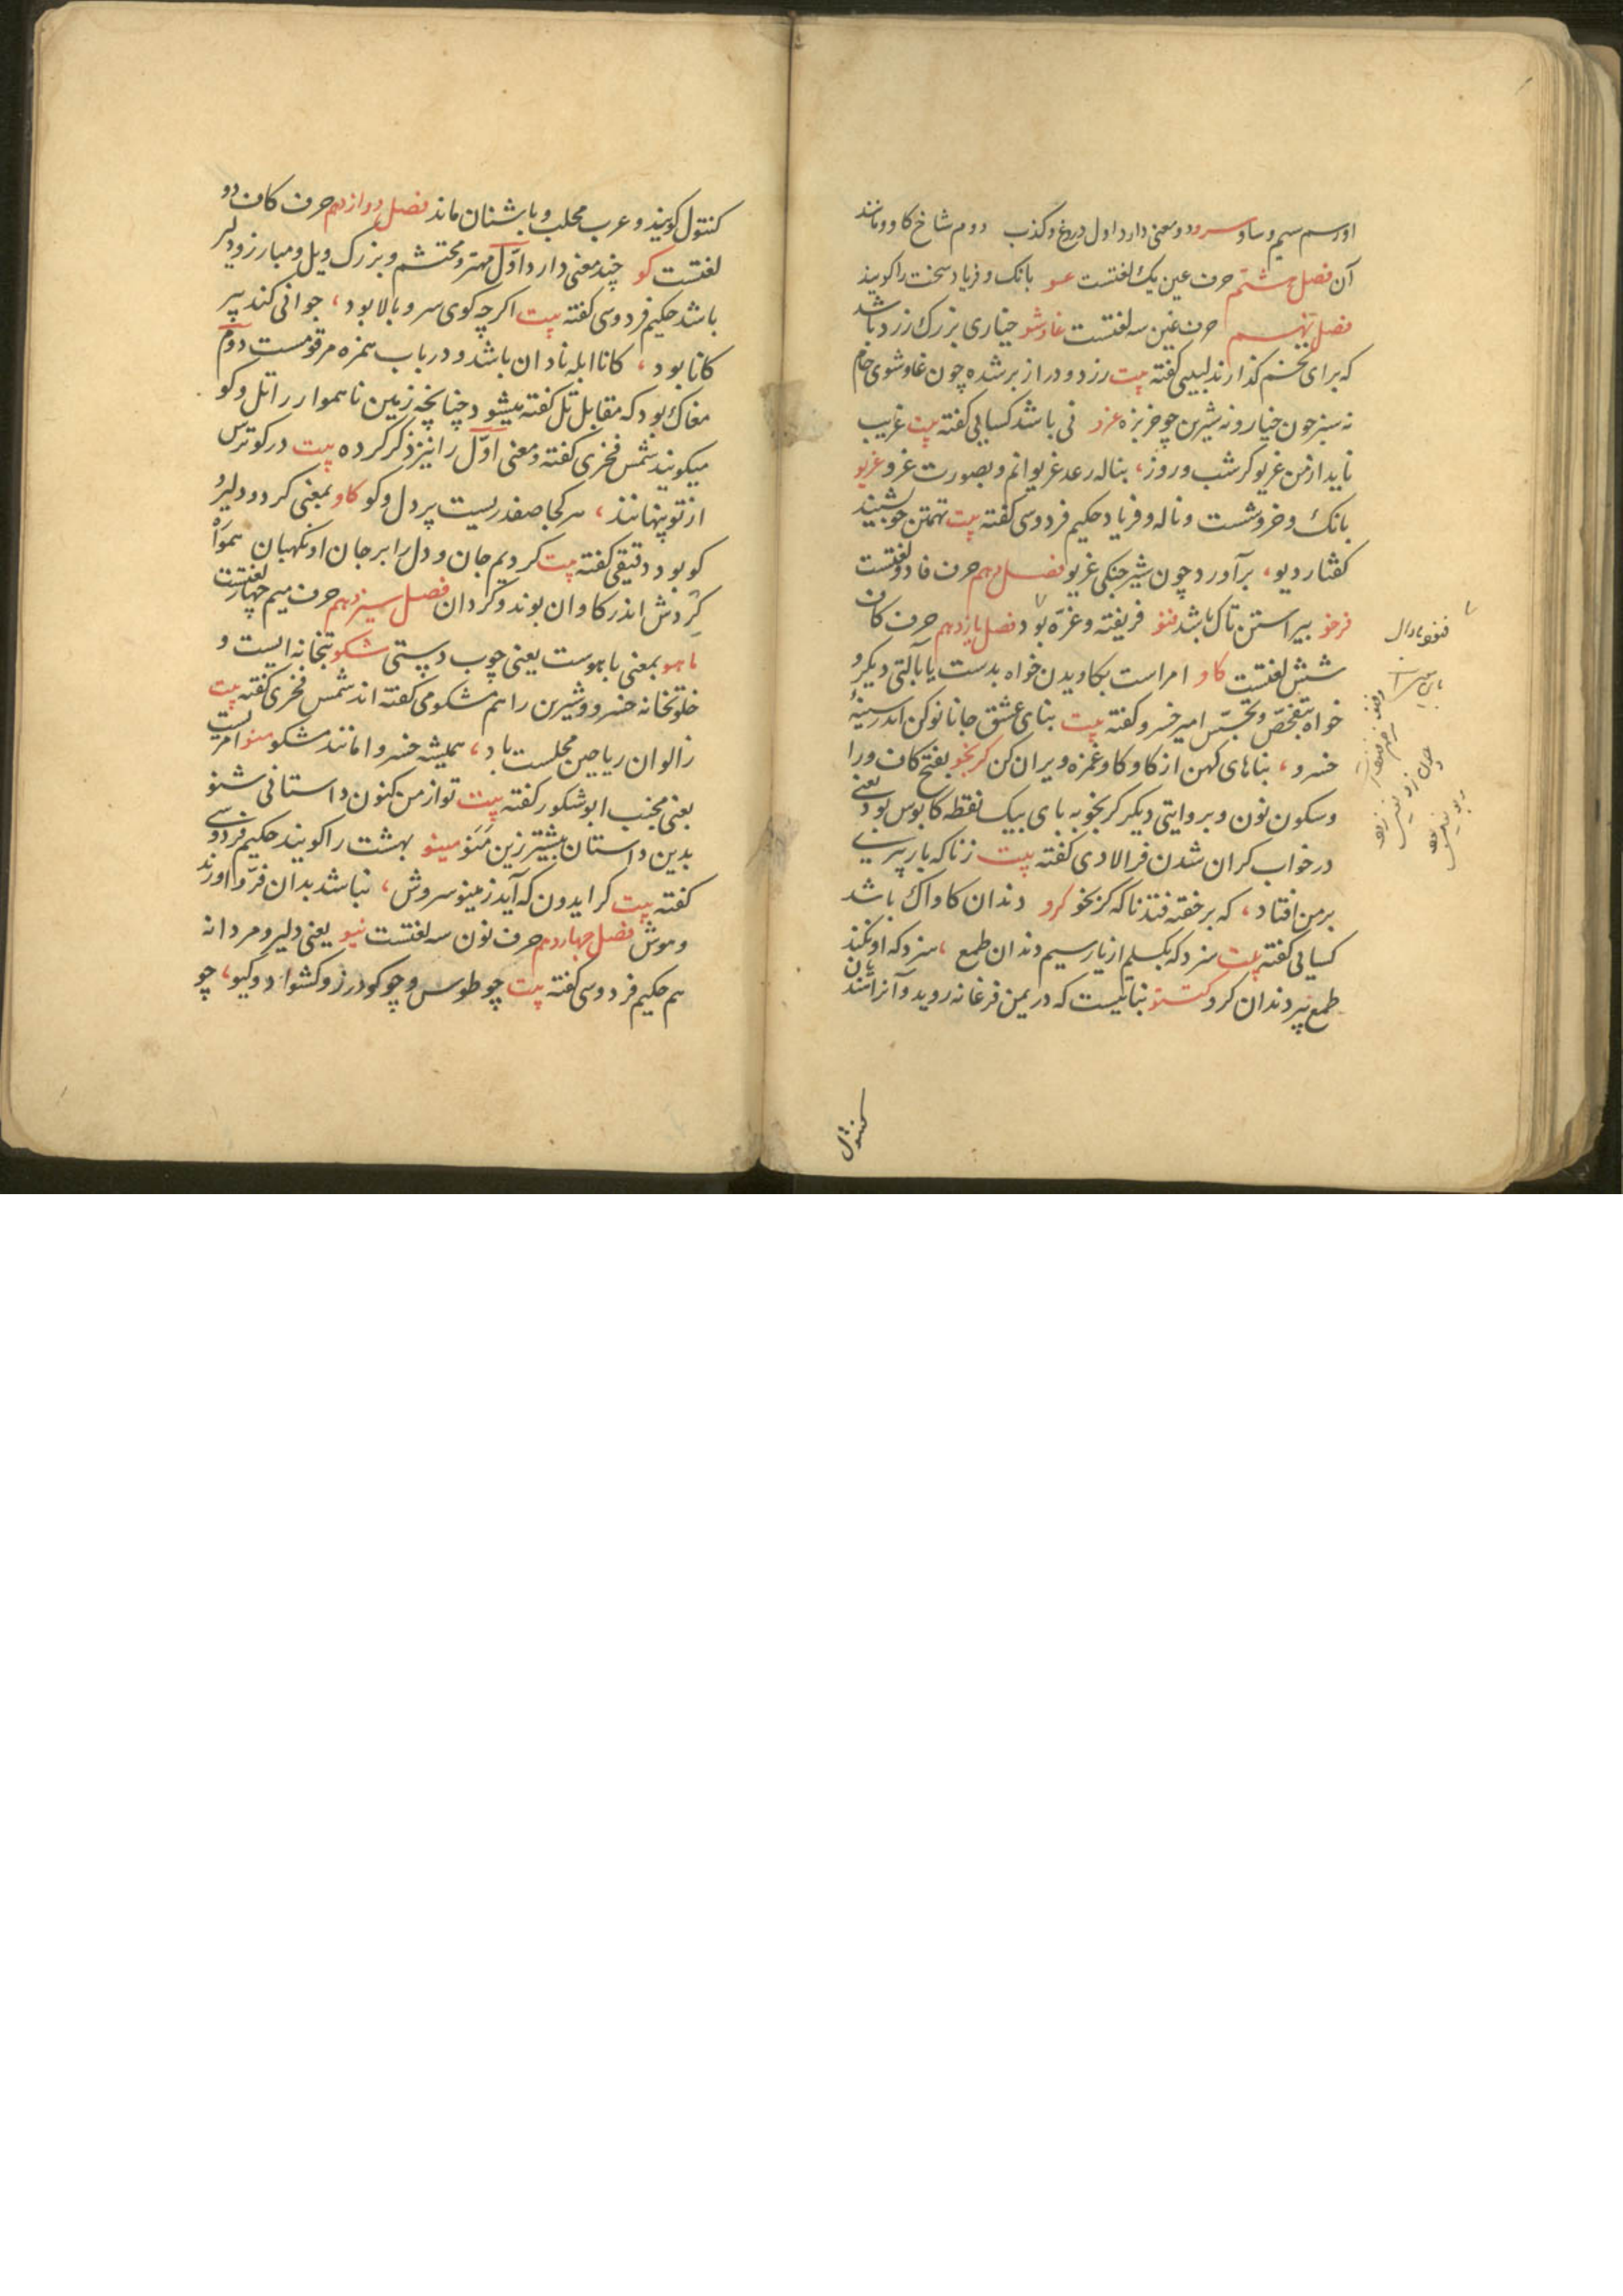 او رسم سیم و ساو سرو دو معنی دارد اول دروغ و کذب دوم شاخ کاو و مانند
آن فصل هشتم حرف عین یک لغتست عو بانک و فریاد سخت را کویند
فصل نهم حرف غین سه لغتست غاوشو خیاری بزرک زرد باشد
که برای تخم کذارند لبیبی کفته بیت زرد و دراز بر شده چون غاوشوی خام
نه سبز چون خیار و نه شیرین چو خربزه غرو نی باشد کسایی کفته بیت غریب
ناید از من غریو کر شب و روز، بناله رعد غریوانم و بصورت غرو غریو
بانک و خروشست و ناله و فریاد حکیم فردوسی کفته بیت تهمتن چو بشنید
کفتار دیو، برآورد چون شیر جنکی غریو فصل دهم حرف فا دو لغتست
فرخو پیراستن تاک باشد فنو فریفته و غرّه بود فصل یازدهم حرف کاف
شش لغتست کاو امر است بکاویدن خواه بدست یا بآلتی دیکر و
خواه بتفحّص و تجسّس امیر خسرو کفته بیت بنای عشق جانا نو کن اندر سینهٔ
خسرو، بناهای کهن از کاو کاو غمزه ویران کن کرنجو بفتح کاف و را
و سکون نون و بروایتی دیکر کربجو به بای بیک نقطه کابوس بود یعنی
در خواب کران شدن فرالادی کفته بیت زناکه بار پیری
بر من افتاد، که بر خفته فتد ناکه کرنجو کرو دندان کاواک باشد
کسایی کفته بیت سزد که بکسلم از یار سیم دندان طمع، سزد که او نکند
طمع پیر دندان کرو کستو نباتیست که در یمن فرغانه روید و آنرا
کنتول
کنتول کویند و عرب محلب و باشنان ماند فصل دوازدهم حرف کاف دو
لغتست کو چند معنی دارد اوّل مهتر و محتشم و بزرک ویل و مبارز و دلیر
باشد حکیم فردوسی کفته بیت اکر چه کوی سرو بالا بود، جوانی کند پیر
کانا بود، کانا ابله نادان باشد و در باب همزه مرقومست دوّم
مغاک بود که مقابل تل کفته میشود چنانچه زمین ناهموار را تل و کو
میکویند شمس فخری کفته و معنی اوّل را نیز ذکر کرده بیت در کو ترس
از تو پنهانند، هر کجا صفدریست پر دل و کو کاو بمعنی کرد و دلیر و
کو بود دقیقی کفته بیت کردیم جان و دل را بر جان او نکهبان همواره
کردش اندر کاوان بوند و کردان فصل سیزدهم حرف میم چهار لغتست
ماهو بمعنی باهوست یعنی چوب دستی مشکو بتخانه ایست و
خلوتخانه خسرو و شیرین را هم مشکو می کفته اند شمس فخری کفته بیت
ز الوان ریاحین مجلست باد، همیشه خسروا مانند مشکو منو امریست
یعنی مجنب ابو شکور کفته بیت تو از من کنون داستانی شنو
بدین داستان بیشتر زین مَنَو مینو بهشت را کویند حکیم فردوسی
کفته بیت کر ایدون که آید ز مینو سروش، نباشد بدان فرّ و اورند
و موش فصل چهاردهم حرف نون سه لغتست نیو یعنی دلیر و مردانه
هم حکیم فردوسی کفته بیت چو طوس و چو کودرز و کشواد و کیو، چو